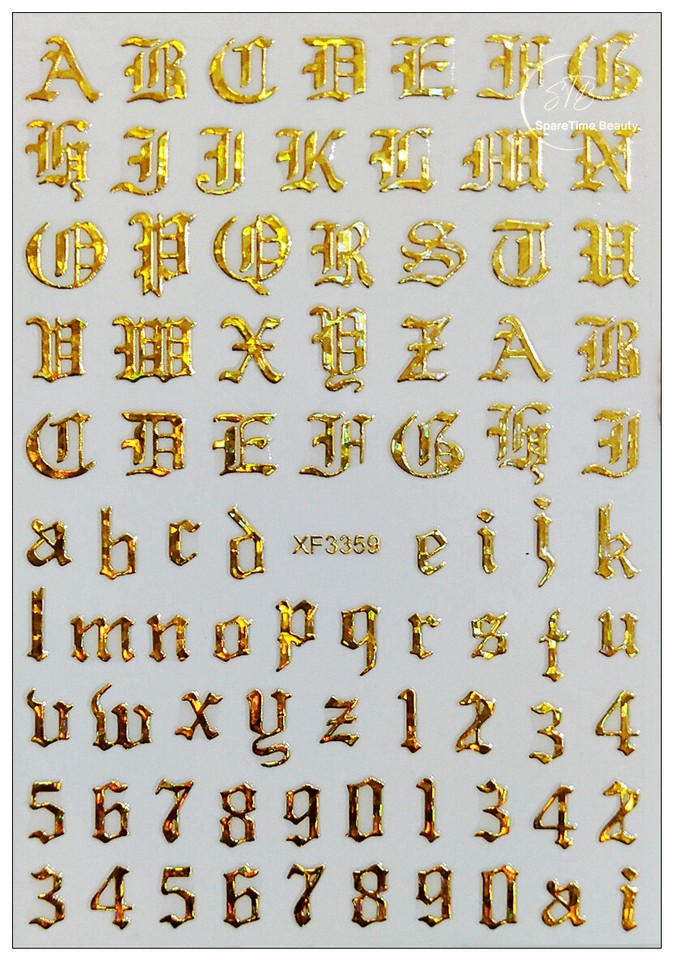 A B C D E F G
STB
SpareTime Beauty
H I J K L M N
O P Q R S T U
V W X Y Z A B
C D E F G H I
a b c d XF3359 e i j k
l m n o p q r s t u
v w x y z 1 2 3 4
5 6 7 8 9 0 1 3 4 2
3 4 5 6 7 8 9 0 a i